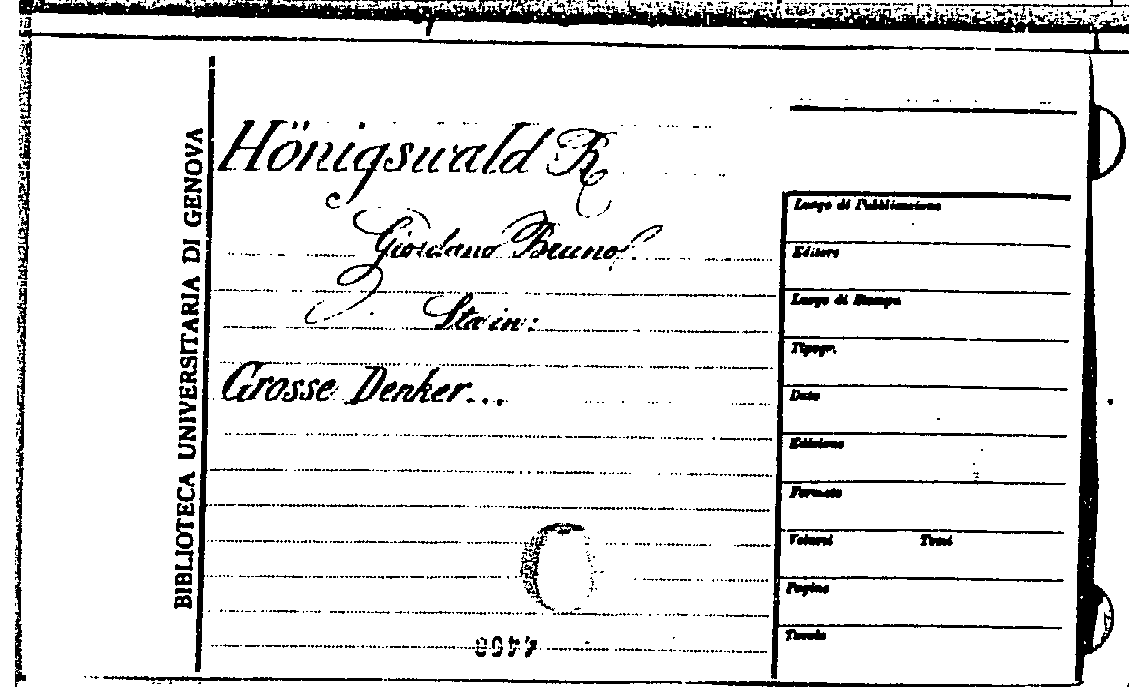 BIBLIOTECA UNIVERSITARIA DI GENOVA
Hönigswald R
Giordano Bruno.
Stain:
Grosse Denker...
Luogo di Pubblicazione
Editore
Luogo di Stampa
Tipogr.
Data
Edizione
Formato
Volumi Tomi
Pagine
Tavole